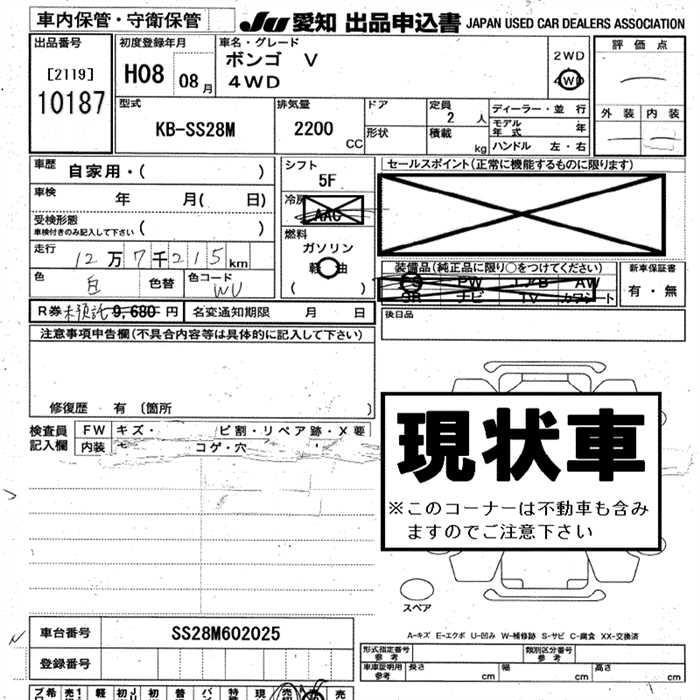 車内保管・守衛保管 JU 愛知 出品申込書 JAPAN USED CAR DEALERS ASSOCIATION
出品番号
[2119]
10187
初度登録年月
H08 08月
車名・グレード
ボンゴ V
4WD
2WD
4WD
評価点
外装 内装
型式
KB-SS28M
排気量
2200 CC
ドア
形状
定員
2人
積載
kg
ディーラー・並行
モデル年式 年
ハンドル 左・右
車歴 自家用・( )
車検 年 月( 日)
受検形態
車検付きのみ記入して下さい ( )
走行 12万7千215km
色 白 色替 色コード WU
シフト
5F
冷房
AAC
燃料
ガソリン
軽油
( )
セールスポイント(正常に機能するものに限ります)
装備品(純正品に限り○をつけてください)
PS PW エアB AW
SR ナビ TV カワシート
新車保証書
有・無
R券 未預託 9,680円 名変通知期限 月 日
後日品
注意事項申告欄(不具合内容等は具体的に記入して下さい)
修復歴 有 〔箇所 〕
検査員記入欄 FW キズ・ ヒ割・リペア跡・X要
内装 コゲ・穴
現状車
※このコーナーは不動車も含み
ますのでご注意下さい
スペア
A-キズ E-エクボ U-凹み W-補修跡 S-サビ C-腐食 XX-交換済
車台番号 SS28M602025
登録番号
形式指定番号 参考 類別区分番号 参考
車庫証明用 参考 長さ cm 幅 cm 高さ cm